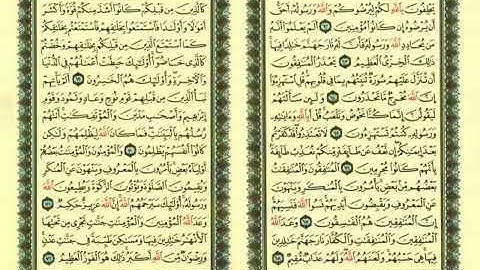 يَحْلِفُونَ بِٱللَّهِ لَكُمْ لِيُرْضُوكُمْ وَٱللَّهُ وَرَسُولُهُۥٓ أَحَقُّ
أَن يُرْضُوهُ إِن كَانُوا۟ مُؤْمِنِينَ ٦٢ أَلَمْ يَعْلَمُوٓا۟ أَنَّهُۥ
مَن يُحَادِدِ ٱللَّهَ وَرَسُولَهُۥ فَأَنَّ لَهُۥ نَارَ جَهَنَّمَ خَٰلِدًا فِيهَا
ذَٰلِكَ ٱلْخِزْىُ ٱلْعَظِيمُ ٦٣ يَحْذَرُ ٱلْمُنَٰفِقُونَ
أَن تُنَزَّلَ عَلَيْهِمْ سُورَةٌ تُنَبِّئُهُم بِمَا فِى قُلُوبِهِمْ قُلِ ٱسْتَهْزِءُوٓا۟
إِنَّ ٱللَّهَ مُخْرِجٌ مَّا تَحْذَرُونَ ٦٤ وَلَئِن سَأَلْتَهُمْ
لَيَقُولُنَّ إِنَّمَا كُنَّا نَخُوضُ وَنَلْعَبُ قُلْ أَبِٱللَّهِ وَءَايَٰتِهِۦ
وَرَسُولِهِۦ كُنتُمْ تَسْتَهْزِءُونَ ٦٥ لَا تَعْتَذِرُوا۟ قَدْ كَفَرْتُم
بَعْدَ إِيمَٰنِكُمْ إِن نَّعْفُ عَن طَآئِفَةٍ مِّنكُمْ نُعَذِّبْ طَآئِفَةًۢ
بِأَنَّهُمْ كَانُوا۟ مُجْرِمِينَ ٦٦ ٱلْمُنَٰفِقُونَ وَٱلْمُنَٰفِقَٰتُ
بَعْضُهُم مِّنۢ بَعْضٍ يَأْمُرُونَ بِٱلْمُنكَرِ وَيَنْهَوْنَ
عَنِ ٱلْمَعْرُوفِ وَيَقْبِضُونَ أَيْدِيَهُمْ نَسُوا۟ ٱللَّهَ فَنَسِيَهُمْ
إِنَّ ٱلْمُنَٰفِقِينَ هُمُ ٱلْفَٰسِقُونَ ٦٧ وَعَدَ ٱللَّهُ
ٱلْمُنَٰفِقِينَ وَٱلْمُنَٰفِقَٰتِ وَٱلْكُفَّارَ نَارَ جَهَنَّمَ خَٰلِدِينَ
فِيهَا هِىَ حَسْبُهُمْ وَلَعَنَهُمُ ٱللَّهُ وَلَهُمْ عَذَابٌ مُّقِيمٌ ٦٨
كَٱلَّذِينَ مِن قَبْلِكُمْ كَانُوٓا۟ أَشَدَّ مِنكُمْ قُوَّةً وَأَكْثَرَ
أَمْوَٰلًا وَأَوْلَٰدًا فَٱسْتَمْتَعُوا۟ بِخَلَٰقِهِمْ فَٱسْتَمْتَعْتُم بِخَلَٰقِكُمْ
كَمَا ٱسْتَمْتَعَ ٱلَّذِينَ مِن قَبْلِكُم بِخَلَٰقِهِمْ وَخُضْتُمْ
كَٱلَّذِى خَاضُوٓا۟ أُو۟لَٰٓئِكَ حَبِطَتْ أَعْمَٰلُهُمْ فِى ٱلدُّنْيَا
وَٱلْءَاخِرَةِ وَأُو۟لَٰٓئِكَ هُمُ ٱلْخَٰسِرُونَ ٦٩ أَلَمْ يَأْتِهِمْ
نَبَأُ ٱلَّذِينَ مِن قَبْلِهِمْ قَوْمِ نُوحٍ وَعَادٍ وَثَمُودَ وَقَوْمِ
إِبْرَٰهِيمَ وَأَصْحَٰبِ مَدْيَنَ وَٱلْمُؤْتَفِكَٰتِ أَتَتْهُمْ
رُسُلُهُم بِٱلْبَيِّنَٰتِ فَمَا كَانَ ٱللَّهُ لِيَظْلِمَهُمْ وَلَٰكِن
كَانُوٓا۟ أَنفُسَهُمْ يَظْلِمُونَ ٧٠ وَٱلْمُؤْمِنُونَ وَٱلْمُؤْمِنَٰتُ بَعْضُهُمْ
أَوْلِيَآءُ بَعْضٍ يَأْمُرُونَ بِٱلْمَعْرُوفِ وَيَنْهَوْنَ عَنِ ٱلْمُنكَرِ
وَيُقِيمُونَ ٱلصَّلَوٰةَ وَيُؤْتُونَ ٱلزَّكَوٰةَ وَيُطِيعُونَ ٱللَّهَ
وَرَسُولَهُۥٓ أُو۟لَٰٓئِكَ سَيَرْحَمُهُمُ ٱللَّهُ إِنَّ ٱللَّهَ عَزِيزٌ حَكِيمٌ ٧١
وَعَدَ ٱللَّهُ ٱلْمُؤْمِنِينَ وَٱلْمُؤْمِنَٰتِ جَنَّٰتٍ تَجْرِى مِن تَحْتِهَا
ٱلْأَنْهَٰرُ خَٰلِدِينَ فِيهَا وَمَسَٰكِنَ طَيِّبَةً فِى جَنَّٰتِ عَدْنٍ
وَرِضْوَٰنٌ مِّنَ ٱللَّهِ أَكْبَرُ ذَٰلِكَ هُوَ ٱلْفَوْزُ ٱلْعَظِيمُ ٧٢